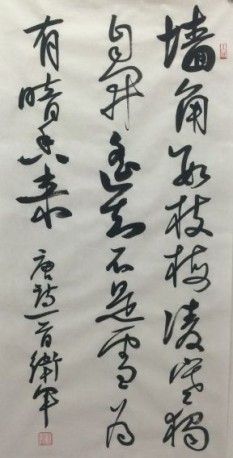 墙角数枝梅凌寒独
自开遥知不是雪为
有暗香来 唐诗一首衛军